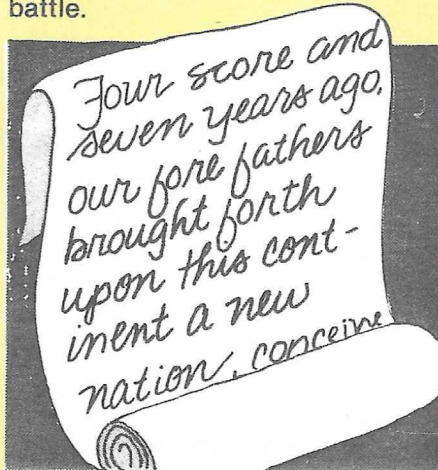 battle.
Four score and
seven years ago,
our fore fathers
brought forth
upon this cont-
inent a new
nation, conceive